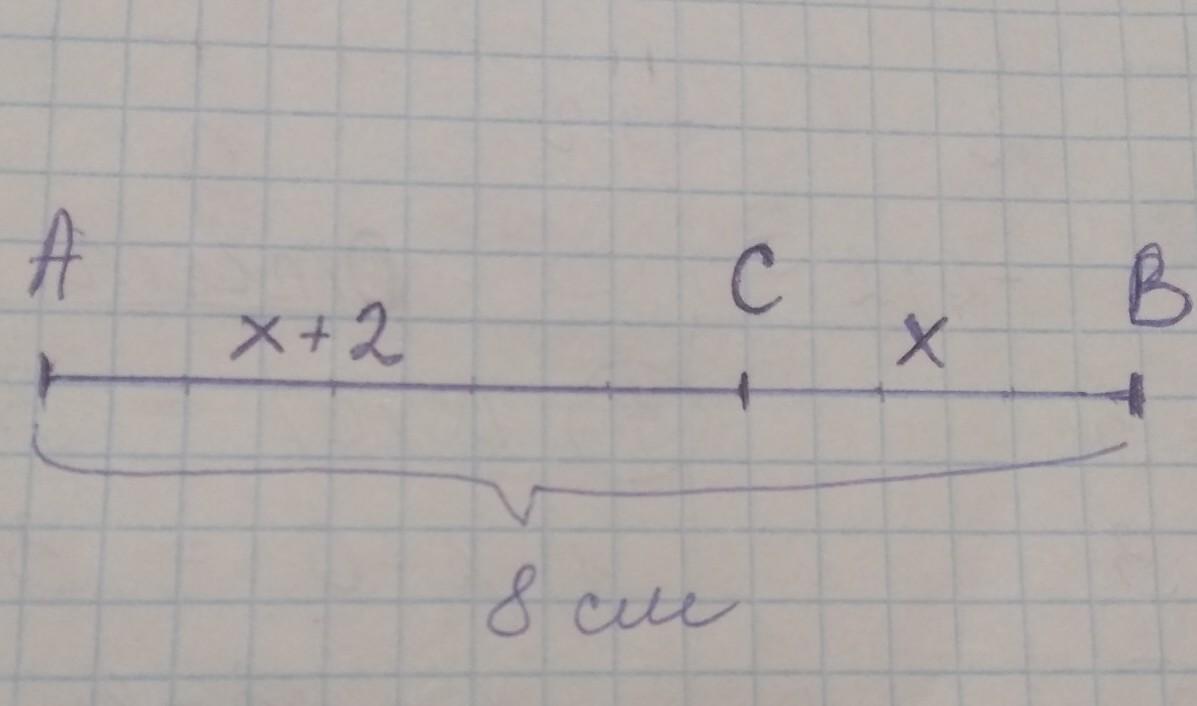 A C B
x+2 x
8 см